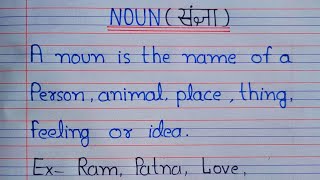 NOUN (संज्ञा)
A noun is the name of a
Person, animal. place, thing,
feeling or idea.
Ex- Ram, Patna, Love,